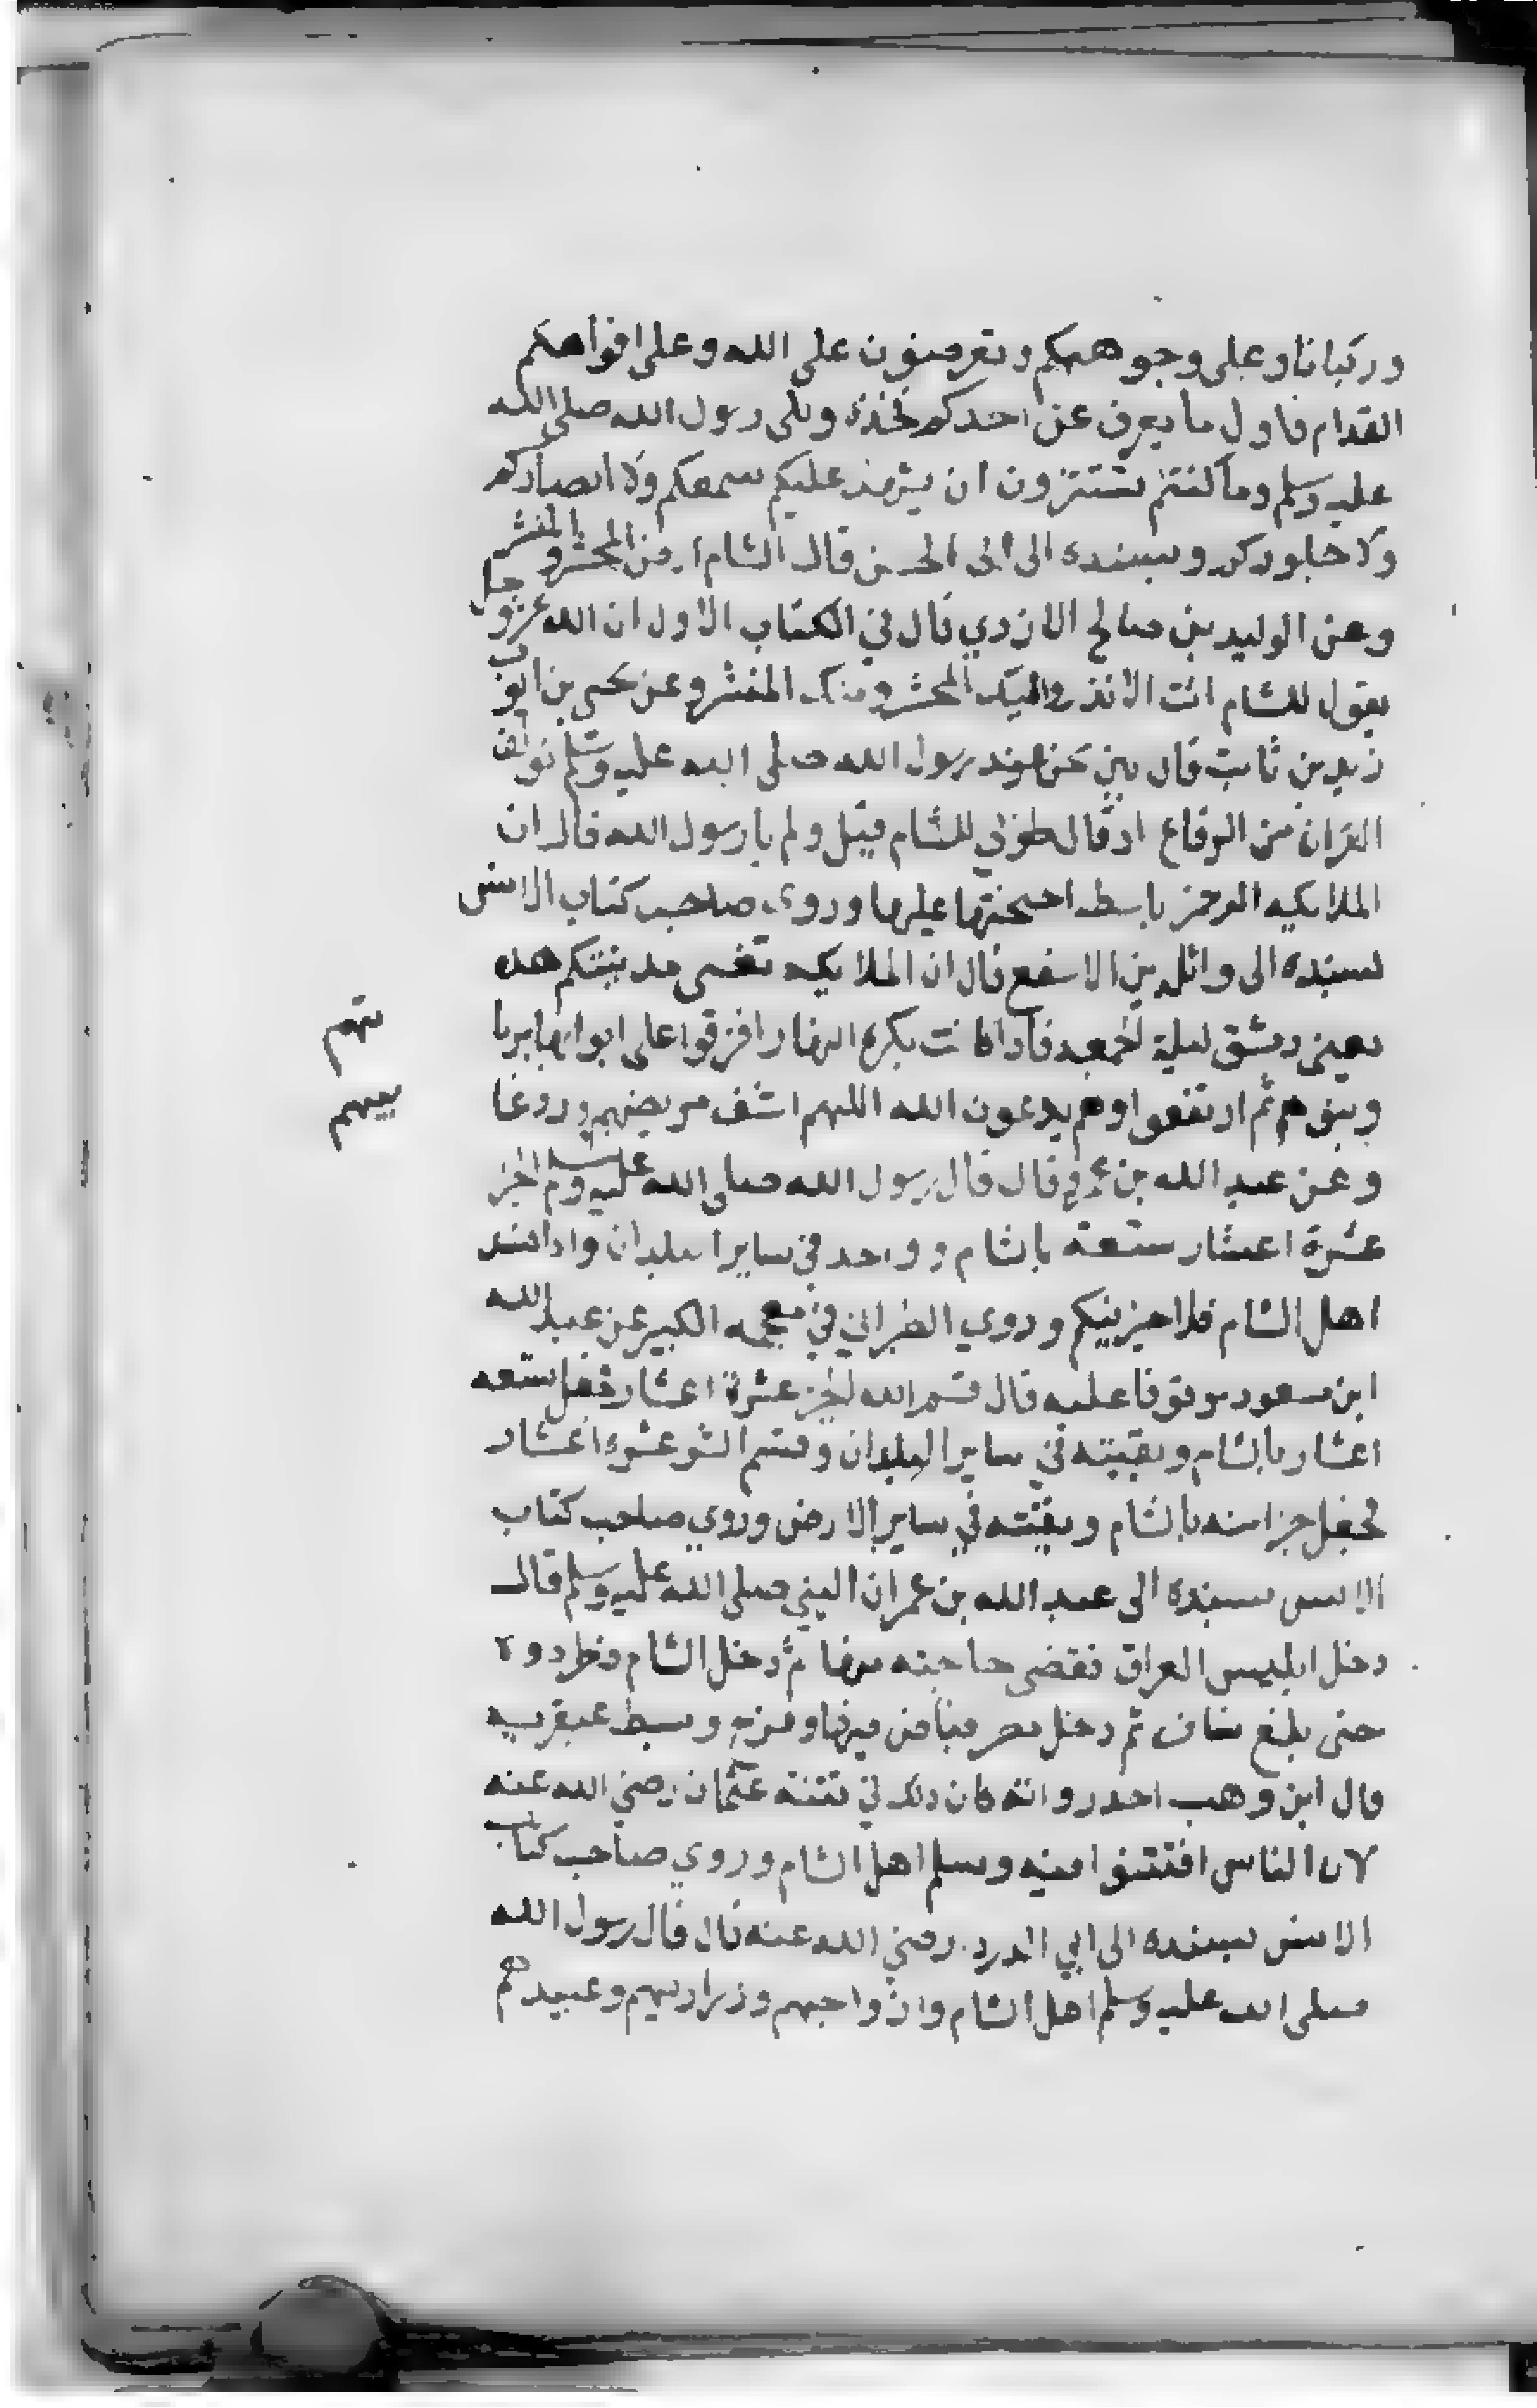 وركبانا وعلى وجوهكم وتعرضون على الله وعلى افواهكم
الفدام فاول ما يعرب عن احدكم فخذه وتلى رسول الله صلى الله
عليه وسلم وما كنتم تستترون ان يشهد عليكم سمعكم ولا ابصاركم
ولا جلودكم وبسنده الى ابى الحسن قال الشام ارض المحشر والمنشر
وعن الوليد بن صالح الازدي قال في الكتاب الاول ان الله عز وجل
يقول للشام انت الاندر واليك المحشر ومنك المنشر وعن يحيى بن ايوب
زيد بن ثابت قال بين نحن عند رسول الله صلى الله عليه وسلم نولف
القران من الرقاع اذ قال طوبى للشام قيل ولم يا رسول الله قال ان
الملايكه الرحمن باسطه اجنحتها عليها وروى صاحب كتاب الانس
بسنده الى واثله بن الاسقع قال ان الملايكه تغشى مدينتكم هذه
يعني دمشق ليلة الجمعه فاذا كانت بكرة النهار افترقوا على ابوابها براياتهم
وبنودهم ثم ارتفعوا وهم يدعون الله اللهم اشف مريضهم ورد غايبهم
وعن عبد الله بن عمرو قال قال رسول الله صلى الله عليه وسلم الخير
عشرة اعشار تسعة بالشام وواحد في ساير البلدان واذا فسد
اهل الشام فلا خير فيكم وروي الطبراني في معجمه الكبير عن عبد الله
ابن مسعود موقوفا عليه قال قسم الله الخير عشرة اعشار فجعل تسعه
اعشار بالشام وبقيته في ساير البلدان وقسم الشر عشرة اعشار
فجعل جزا منه بالشام وبقيته في ساير الارض وروي صاحب كتاب
الانس بسنده الى عبد الله بن عمر ان النبي صلى الله عليه وسلم قال
دخل ابليس العراق فقضى حاجته منها ثم دخل الشام فطردوه
حتى بلغ بساق ثم دخل مصر فباض فيها وفرخ وبسط عبقريه
قال ابن وهب احد رواته كان ذلك في فتنة عثمان رضي الله عنه
لان الناس افتتنوا فيه وسلم اهل الشام وروي صاحب كتاب
الانس بسنده الى ابي الدردا رضي الله عنه قال قال رسول الله
صلى الله عليه وسلم اهل الشام وازواجهم وذراريهم وعبيدهم